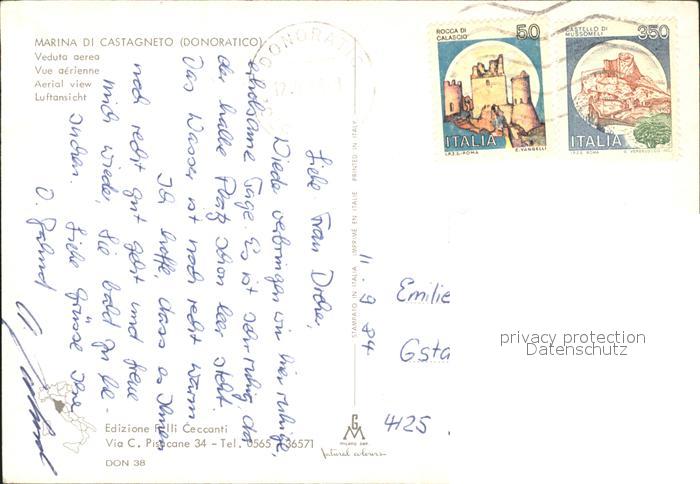 MARINA DI CASTAGNETO (DONORATICO)
Veduta aerea
Vue aérienne
Aerial view
Luftansicht
Liebe Frau Drehe,
Wieder verbringen wir hier ruhige,
erholsame Tage. Es ist sehr ruhig, da
der halbe Platz schon leer steht.
Das Wasser ist noch recht warm
Ich hoffe, dass es Ihnen
noch recht gut geht und freue
mich wieder, Sie bald zu be-
suchen. Liebe Grüsse Ihre
11. 9. 84
Emilie
Gsta
4125
ROCCA DI CALASCIO
50
ITALIA
I.P.Z.S.-ROMA
E. VANGELLI
CASTELLO DI MUSSOMELI
350
ITALIA
I.P.Z.S. ROMA
DONORAT
STAMPATO IN ITALIA IMPRIMÉ EN ITALIE PRINTED IN ITALY
privacy protection
Datenschutz
Edizione F.lli Ceccanti
Via C. Pisacane 34 - Tel. 0565 - 36571
DON 38
GM
natural colours